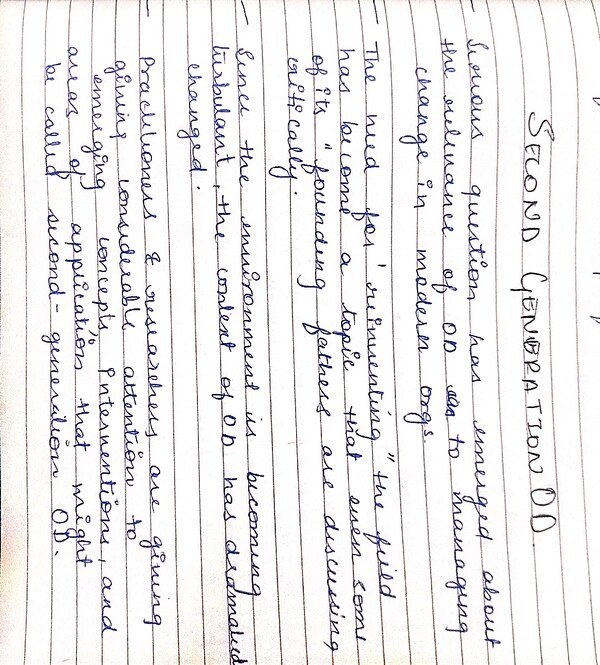 SECOND GENERATION OD.
- Serious question has emerged about
the relevance of OD to managing
change in modern orgs.
- The need for 'reinventing" the field
has become a topic that even some
of its "founding fathers are discussing
critically.
- Since the environment is becoming
turbulant, the context of OD has dramatical
changed.
- Practitioners & researchers are giving
giving considerable attention to
emerging concepts, interventions, and
areas of application that might
be called second-generation OD.